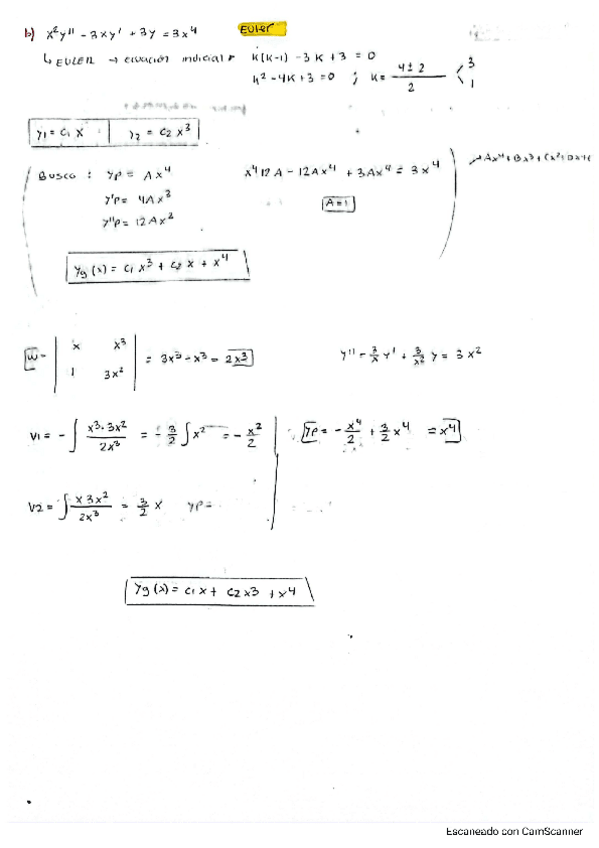 b) x²y'' - 3xy' + 3y = 3x⁴ EULER
↳ EULER → ecuación indicial: k(k-1) - 3k + 3 = 0
k² - 4k + 3 = 0 ; k = (4 ± 2)/2 < 3 1
y₁ = c₁ x | y₂ = c₂ x³
Busco: yp = Ax⁴ x⁴12A - 12Ax⁴ + 3Ax⁴ = 3x⁴
y'p = 4Ax³ A = 1
y''p = 12Ax²
yg(x) = c₁ x³ + c₂ x + x⁴
W = | x x³ | = 3x³ - x³ = 2x³ y'' - 3/x y' + 3/x² y = 3x²
| 1 3x² |
v1 = - ∫ x³·3x²/2x³ = - 3/2 ∫ x² = - x²/2 | yp = - x⁴/2 + 3/2 x⁴ = x⁴
v2 = ∫ x 3x²/2x³ = 3/2 x yp =
yg(x) = c₁x + c₂x3 + x⁴
Escaneado con CamScanner